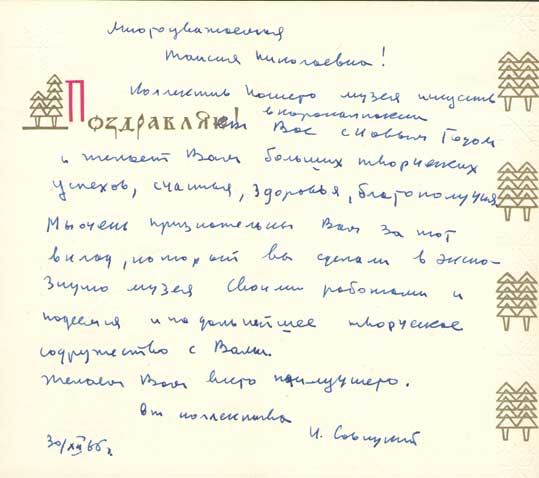 Многоуважаемая
Таисия Николаевна!
Коллектив нашего музея искусств
в Каракалпакии
Поздравляет Вас с Новым Годом
и желает Вам больших творческих
успехов, счастья, здоровья, благополучия.
Мы очень признательны Вам за тот
вклад, который вы сделали в экспо-
зицию музея своими работами и
надеемся и на дальнейшее творческое
содружество с Вами.
Желаем Вам всего наилучшего.
От коллектива
И. Савицкий
30/XII 66 г.